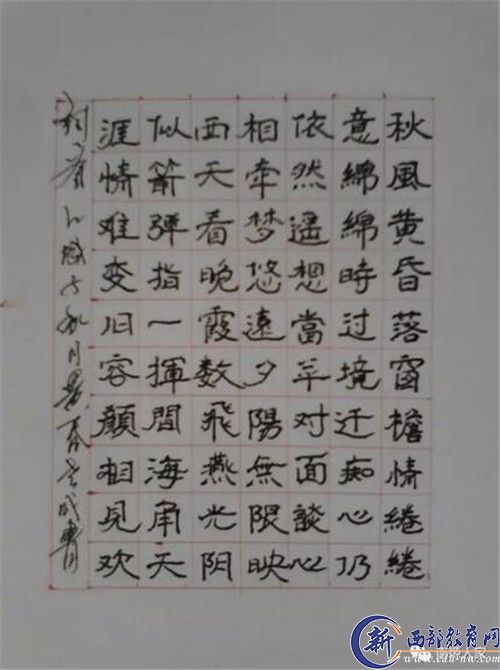 秋風黄昏落窗檐情綣綣
意綿綿時过境迁痴心仍
依然遥想當年对面談心
相牵梦悠遠夕陽無限映
西天看晚霞数飛燕光阴
似箭弹指一揮間海角天
涯情难变旧容顔相見欢
新 西部教育网